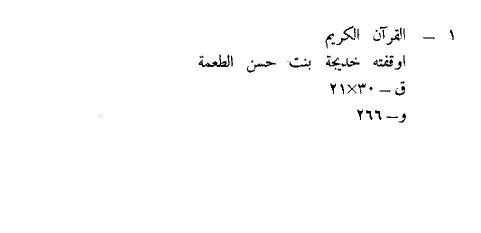 ١ – القرآن الكريم
اوقفته خديجة بنت حسن الطعمة
ق – ٣٠×٢١
و – ٢٦٦